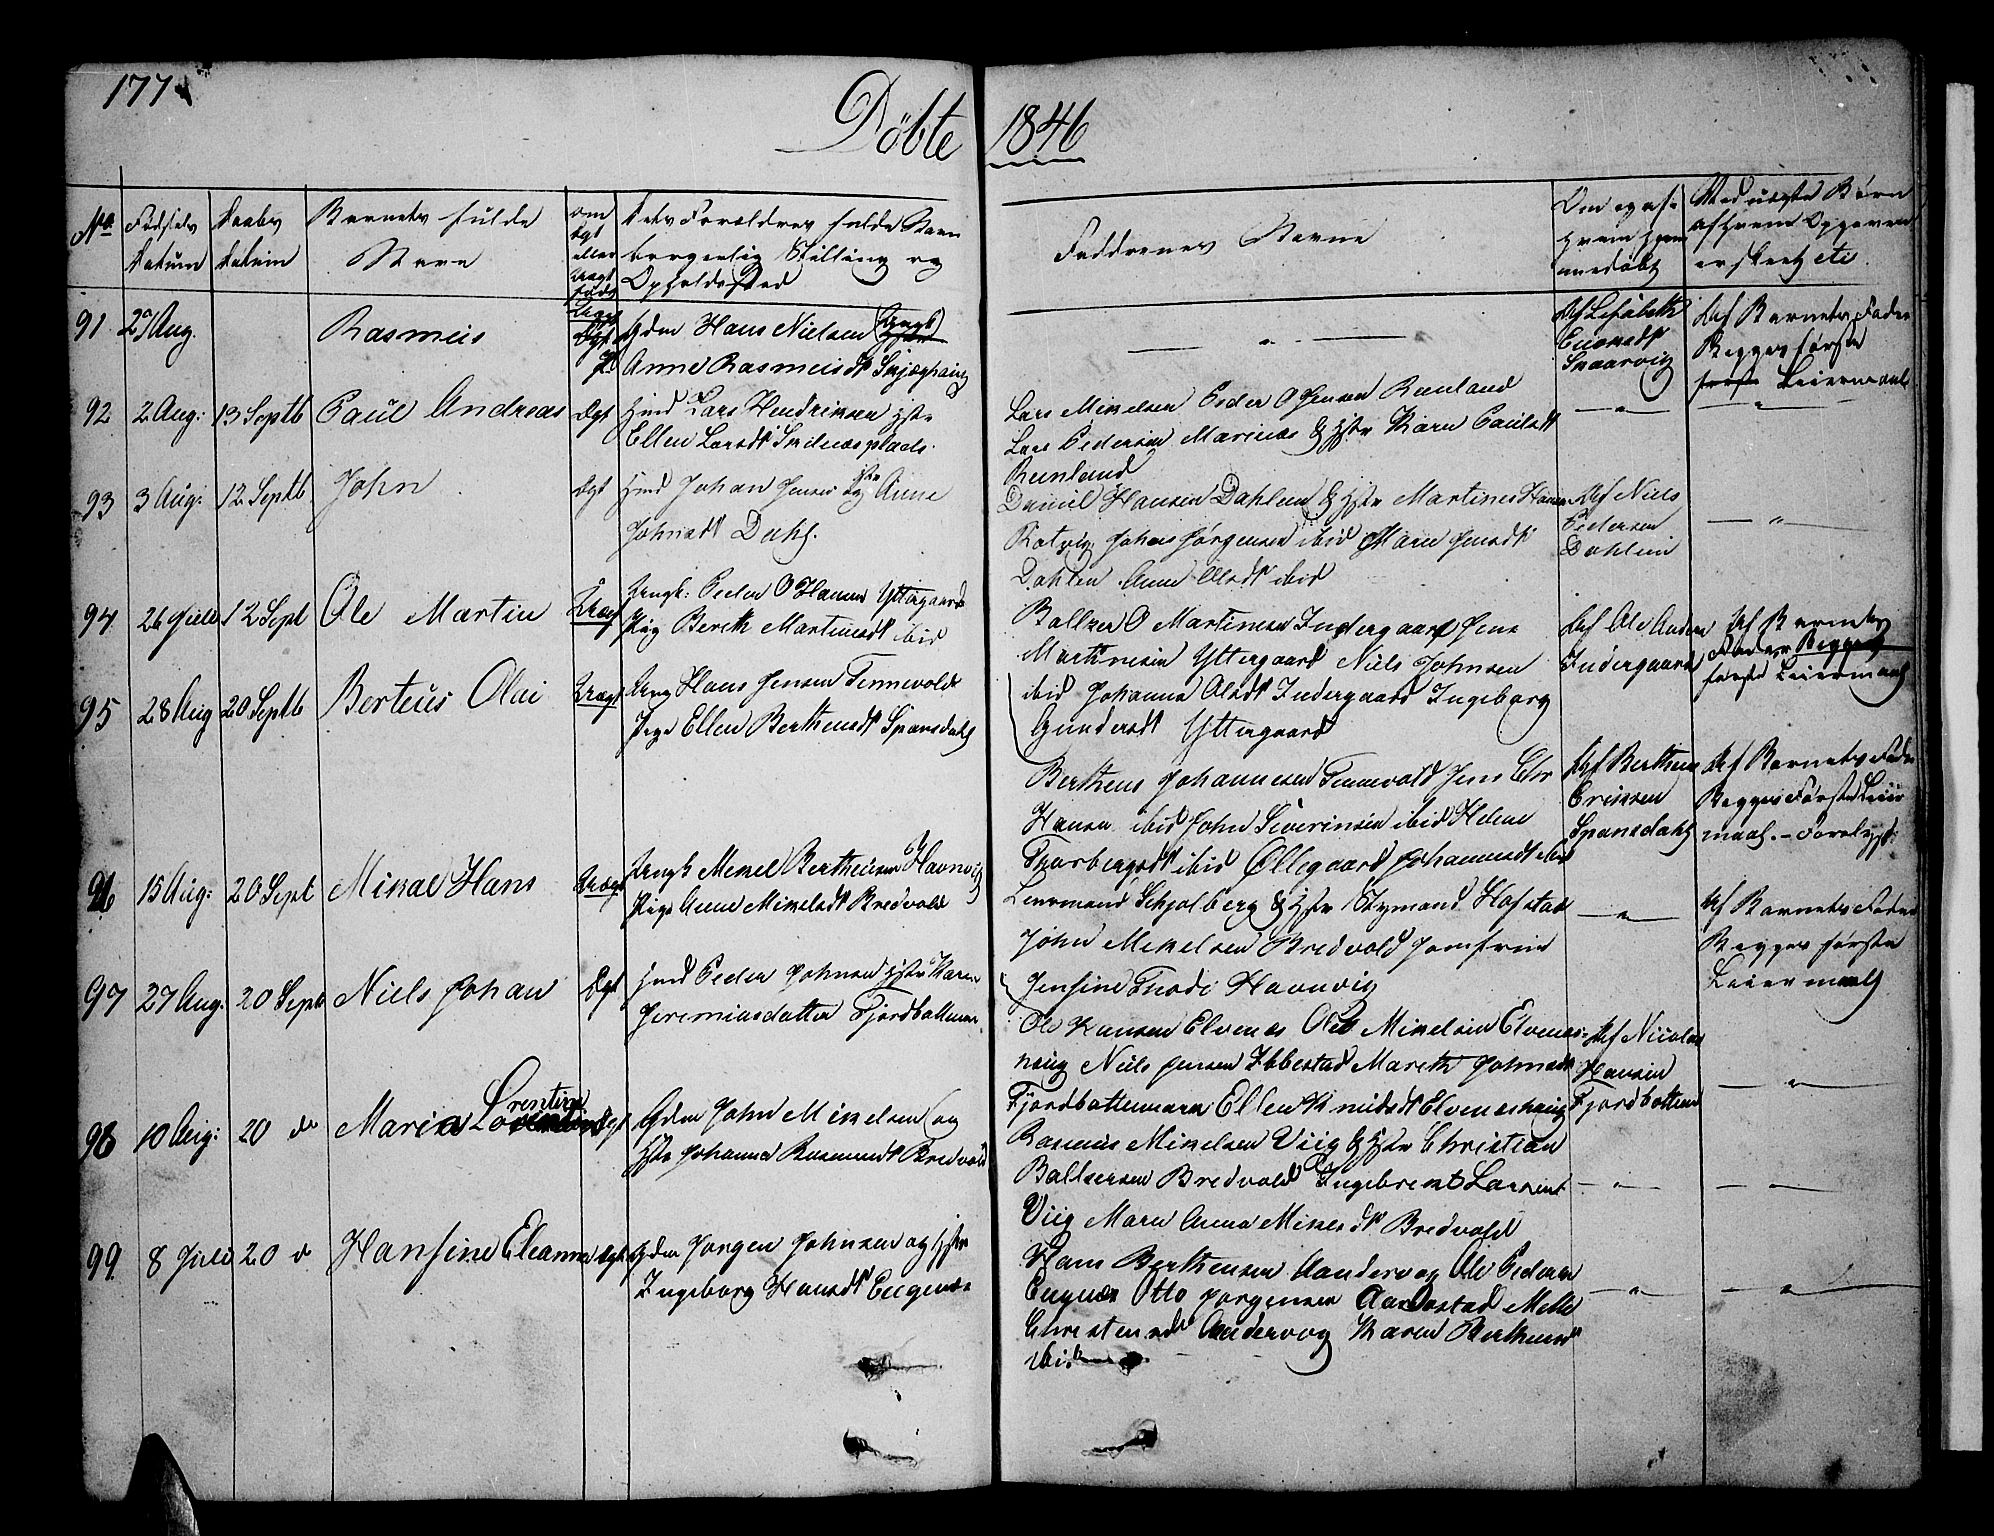 177
Döbte 1846
No Fødsels Datum Daabs Datum Barnets fulde Navn om Ægt eller Uægt født Dets Forældres fulde Navn borgerlig Stilling og Opholdsted Faddernes Navne Om og af hvem hjemmedøbt Ved uægte Børn af hvem Opgaven er skeet etc
91 29 Aug. Rasmus Uægt
Gdm Hans Nielsen
Anne Rasmusdt
Af Lisabeth
Snaarvig
Af Barnets Fader
Begges første
Leiermaal
92 2 Aug: 13 Septb Paul Andreas Ægt
Hmd Lars Hendriksen Hstr
Ellen Larsdt Indnæsplads.
Lars Mikelsen Peder O Jensen Renland
Lars Pedersen Marenæs & Hstr Karn Paulsdt
Renland
93 3 Aug: 12 Septb John Ægt
Hmd Johan Jensen og Hstr Anne
Johnsdt Dahl.
Daniel Hansen Dahlen & Hstr Martines Hansen
Rotvig Johns Jørgensen ibid Maren Jensdt
Dahlen Anne Olsdt ibid
Af Niels
Pedersen
Dahlen
94 26 Juli 12 Sept Ole Martin Uægt
Ungk: Peder O Hansen Yttergaard
Pig Bereth Martinusdt ibid
Baltzer O Martinesen Indergaard Jens
Martinesen Yttergaard Niels Johnsen
ibid Johanna Olsdt Indergaard Ingeborg
Gundersdt Yttergaard
Af Ole Anders
Indergaard
Af Barnets
Fader Begges
første Leiermaal
95 28 Aug 20 Septb Berteus Olai Uægt
Ung Hans Jensen Tennevold
Pige Ellen Berthensdt Spansdahl
Bertheus Johannesen Tennevold Jens Chr
Hansen ibid John Siverinsen ibid Helene
Thorbergsdt ibid Øllegaard Johannesdt ibid
Af Bertheus
Eriksen
Spansdahl
Af Barnets Fader
Begges Første Leier
maal. -
96 15 Aug: 20 Sept Mikal Hans Uægt
Ungk Mikel Bertheusen Havnvig
Pige Anne Mikelsdt Bredvold
Leermand Schjelberg & Hstr Rymand Hofstad
John Mikelsen Bredvold Jomfruen
Jensine Trode Havnvig
Af Barnets Fader
Begges første
Leiermaal
97 27 Aug. 20 Septb Niels Johan Ægt
Hmd Peder Johnsen Hstr Karen
Jeremiasdatter Fjordbotten
Ole Hansen Elvenes Ole Mikelsen Elvenes
haug Niels Jensen Ibbestad Mareth Johnsdt
Fjordbotten Maren Ellen Knudsdt Elveneshaug
Af Nicolai
Hansen
Fjordbotten
98 10 Aug: 20 do Maria Lorentine Ægt
Gdm John Mikelsen og
Hstr Johanna Rasmusdt Bredvold
Rasmus Mikelsen Viig & Hstr Christian
Baltsersen Bredvold Ingebregt Larsen
Viig Maren Anna Mikelsdt Bredvold
99. 8 Juli 20 d Hansine Eleanna Ægt
Gdm Jørgen Johnsen og Hstr
Ingeborg Hansdt Engenæs
Hans Berthensen Aandervog Ole Pedersen
Engenæs Otto Jørgensen Aandstad Melle
Christensdt Andervog Karen Berthensdt
ibid